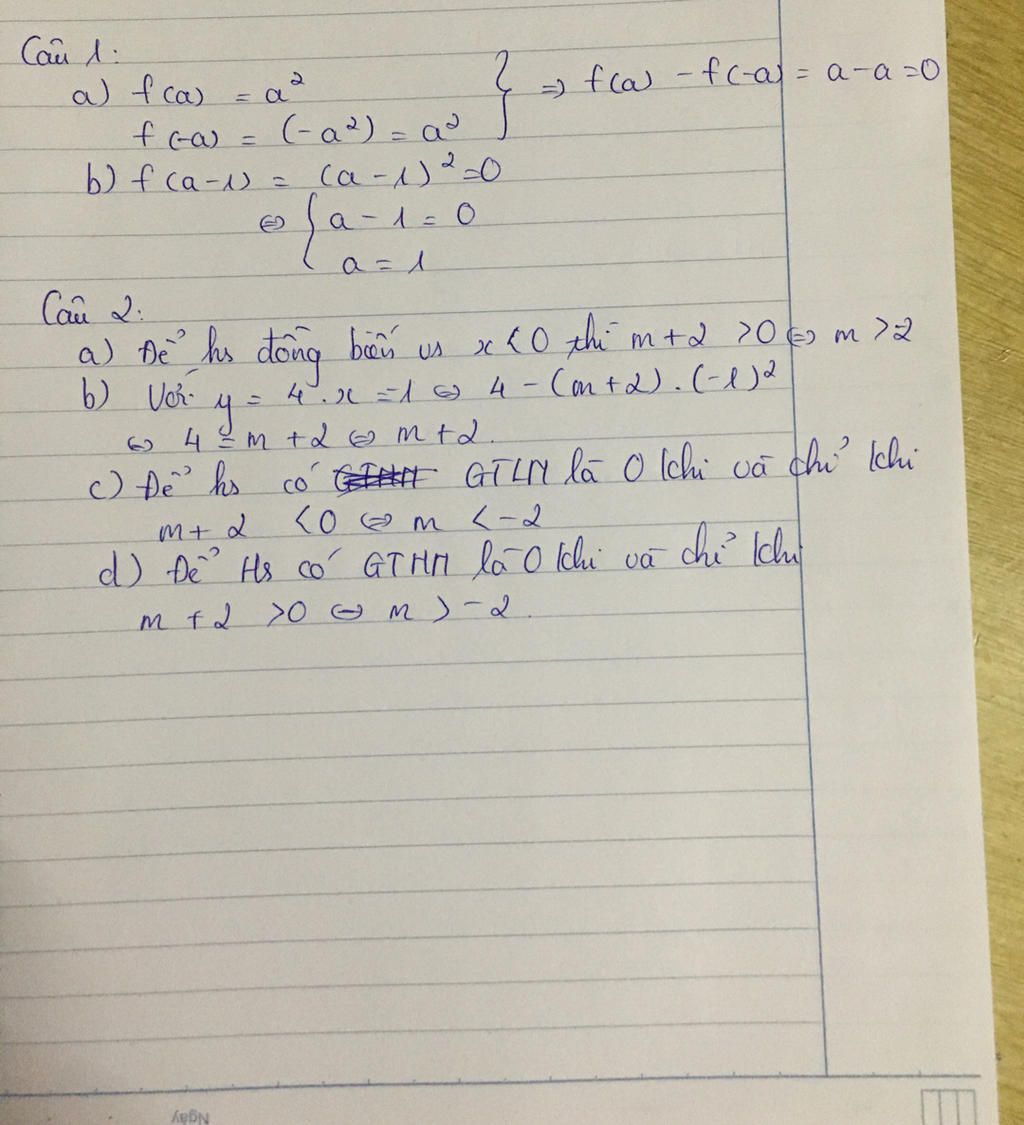 Câu 1:
a) f(a) = a²
f(-a) = (-a²) = a² } ⇒ f(a) - f(-a) = a-a=0
b) f(a-1) = (a-1)²=0
⇔ { a - 1 = 0
a = 1
Câu 2:
a) Để hs đồng biến vs x<0 thì m+2 >0 ⇔ m >-2
b) Với y = 4.x =-1 ⇔ 4 - (m+2).(-1)²
⇔ 4 = m +2 ⇔ m+2.
c) Để hs có GTLN là 0 khi và chỉ khi
m+ 2 <0 ⇔ m <-2
d) Để Hs có GTNN là 0 khi và chỉ khi
m +2 >0 ⇔ m > -2.
Ngày